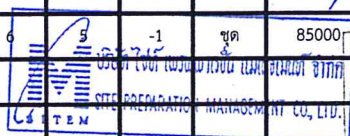 6 5 -1 ชุด 85000
บริษัท ไซท์ เพรพพาเรชั่น แมเนจเมนต์ จำกัด
SITE PREPARATION MANAGEMENT CO., LTD.
SITEM